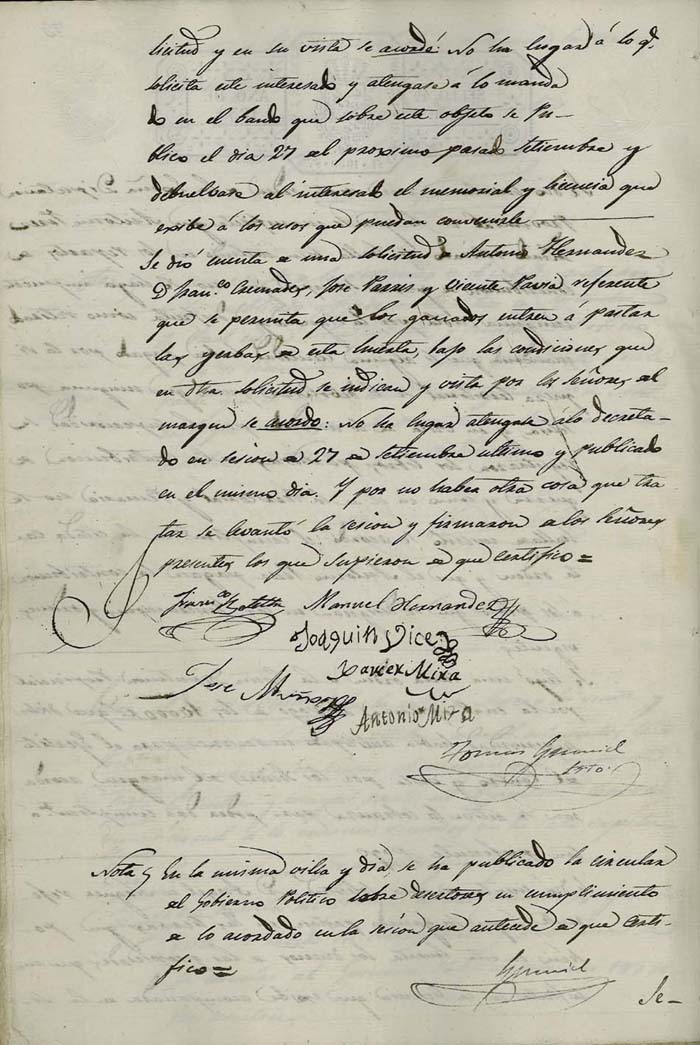 licitud y en su vista se acordó: No ha lugar á lo q.e
solicita este interesado y atengase á lo manda
do en el bando que sobre este objeto se Pu-
blico el dia 27 del proximo pasado Setiembre y
debuelvase al interesado el memorial y licencia que
exsibe á los usos que puedan convenirle
Se dió cuenta de una solicitud de Antonio Hernandez
D. Fran.co Cremades, Jose Parres y Vicente Pavia referente
que se permita que los ganados entren á pastar
las yerbas de esta huerta, bajo las condiciones que
en dha. solicitud se indican y vista por los Señores del
margen se acordo: No ha lugar atengase álo decreta-
do en sesion de 27 de Setiembre ultimo y publicado
en el mismo dia. Y por no haber otra cosa que tra
tar se levantó la sesion y firmaron de los Señores
presentes los que supieron de que certifico=
Fran.co Manuel Hernandez
Joaquin Vice
Xavier Mira
Jose Muñoz
Antonio Mira
Tomas
Srio.
Nota En la misma villa y dia, se ha publicado la circular
del Gobierno Politico sobre desertores en cumplimiento
de lo acordado en la sesion que antecede de que Certi-
fico=
Se-